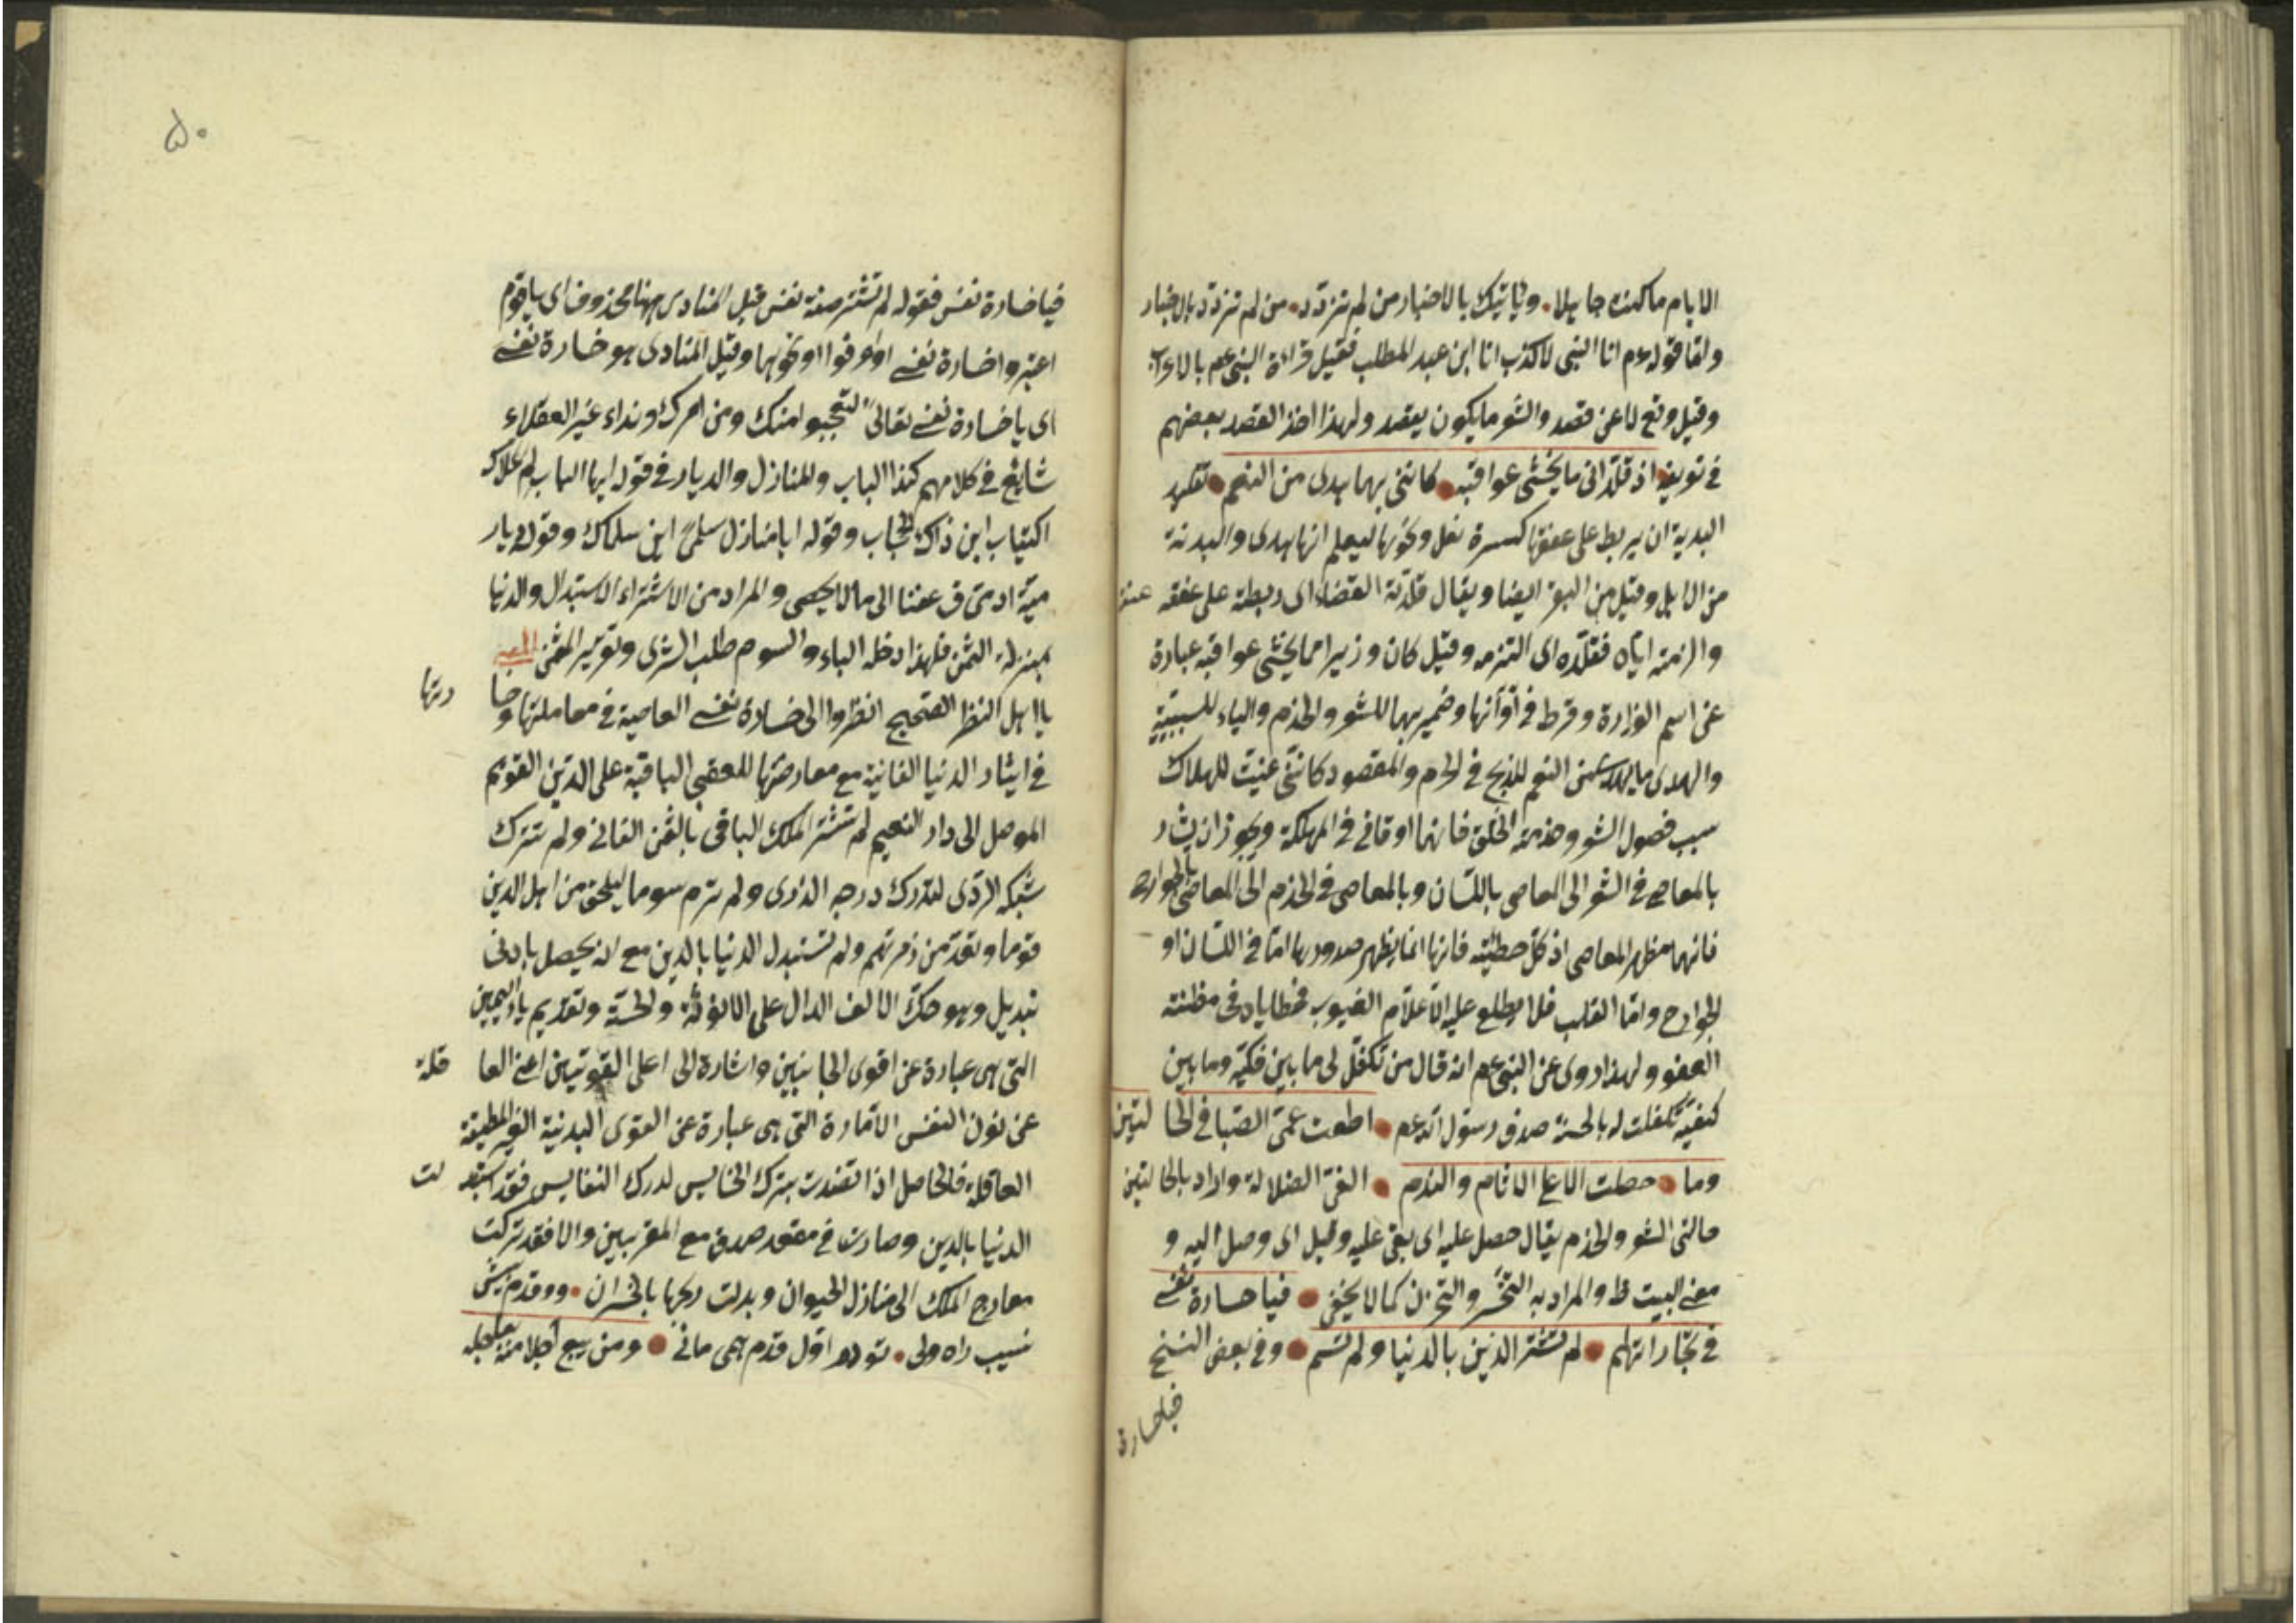 الايام ما كنت جاهلا . وياتيك بالاخبار من لم تزود . من لم تزود بالاخبار
واما قوله عم انا النبى لا كذب انا ابن عبد المطلب فقيل قراءة النبى عم بالاعراب
وقيل وقع لا عن قصد والشعر ما يكون بقصد ولهذا اخذ القصد بعضهم
فى تعريفه اذ قلدانى ما يخشى عواقبه . كاننى بهما هدى من النعم . تقليد
البدنة ان يربط على عنقها كسرة نعل ونحوها ليعلم انها هدى والبدنة
من الابل وقيل من البقر ايضا ويقال قلدته القضاء اى ربطته على عنقه
والزمته اياه فتقلده اى التزمه وقيل كان وزيرا مما يخشى عواقبه عبارة
عن اسم الوزارة وفرط فى اوانها وضمير بهما للشعر والخدم والباء للسببية
والهدى ما يهدى من النعم للذبح فى الحرم والمقصود كاننى عنيت للهلاك
سبب فصول الشعر وخدمة الخلق فانهما اوقعانى فى المهلكة ويجوز ان يشار
بالمعاصى فى الشعر الى المعاصى باللسان وبالمعاصى فى الخدم الى المعاصى بالجوارح
فانهما مظهر المعاصى اذ كل خطيئة فانها انما يظهر صدورها اما فى اللسان او
الجوارح واما القلب فلا يطلع عليه الا علام الغيوب فخطاياه فى مظنة
العفو ولهذا روى عن النبى عم انه قال من تكفل لى ما بين فكيه وما بين
كتفيه تكفلت له بالجنة صدق رسول الله عم . اطعت غى الصبا فى الحا لتين
وما . حصلت الا على الاثام والندم . الغى الضلالة واراد بالحا لتين
حالتى الشعر والخدم يقال حصل عليه اى بقى عليه وقيل اى وصل اليه و
معنى البيت ظ والمراد به التحسر والتحزن كما لا يخفى . فيا خسارة نفس
فى تجاراتهم . لم تشتر الدين بالدنيا ولم تسم . وفى بعض النسخ
فيا خسارة
۵۰
فيا خسارة نفس فقوله لم تشتر صفة نفس قيل المنادى ههنا محذوف اى يا قوم
اعتبروا خسارة نفس او اعرفوا او نحوها وقيل المنادى هو خسارة نفس
اى يا خسارة نفس تعالى ليتعجبوا منك ومن امرك ونداء غير العقلاء
شايع فى كلامهم كنداء الباب والمنازل والديار فى قوله ايها الباب لم علاك
اكتياب اين ذاك الحجاب وقوله ايا منازل سلمى اين سلماك وقوله ديار
مية اذ مى الى ما لا يحصى والمراد من الاشتراء الاستبدال والدنيا
بمنزلة الثمن فلهذا دخله الباء والسوم طلب الشرى
يا اهل النظر الصحيح انظروا الى خسارة نفس العاصية فى معاملتها وخسا رتها
فى ايثار الدنيا الفانية مع معارضتها للعقبى الباقية على الدين القويم
الموصل الى دار النعيم لم تشتر الملك الباقى بالثمن الفانى ولم تترك
شبكة الردى لتدرك درجه الذرى ولم ترم سوما ليلحق من اهل الدين
قوما وتعد من زمرتهم ولم تستبدل الدنيا بالدين مع انه يحصل بادنى
تبديل وهو حك الالف الدال على الانوثة والخسة وتقديم ياء اليمين
التى هى عبارة عن اقوى الجانبين واشارة الى اعلى القوتين اعنى العا قلة
عن نون النفس الامارة التى هى عبارة عن القوى البدنية الغير المطيعة
العاقلة فالحاصل اذا تصدت بترك الخسايس لدرك النفايس فقد استبد لت
الدنيا بالدين وصارت فى مقعد صدق مع المقربين والا فقد تركت
معارج الملك الى منازل الحيوان وبدلت ربحها بالخسران . دو قدم بيش
نيست راه ولى . تو در اول قدم همى مانى . ومن يبع اجلا منه بعاجله